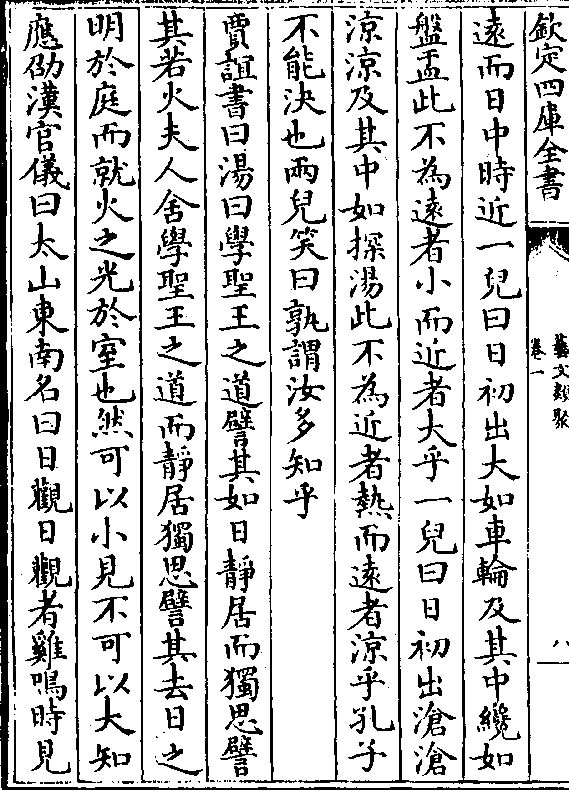 欽定四庫全書
藝文類聚
卷一
八
遠而日中時近一兒曰日初出大如車輪及其中纔如
盤盂此不為遠者小而近者大乎一兒曰日初出滄滄
涼涼及其中如探湯此不為近者熱而遠者涼乎孔子
不能決也兩兒笑曰孰謂汝多知乎
賈誼書曰湯曰學聖王之道譬其如日靜居而獨思譬
其若火夫人舍學聖王之道而靜居獨思譬其去日之
明於庭而就火之光於室也然可以小見不可以大知
應劭漢官儀曰太山東南名曰日觀日觀者雞鳴時見